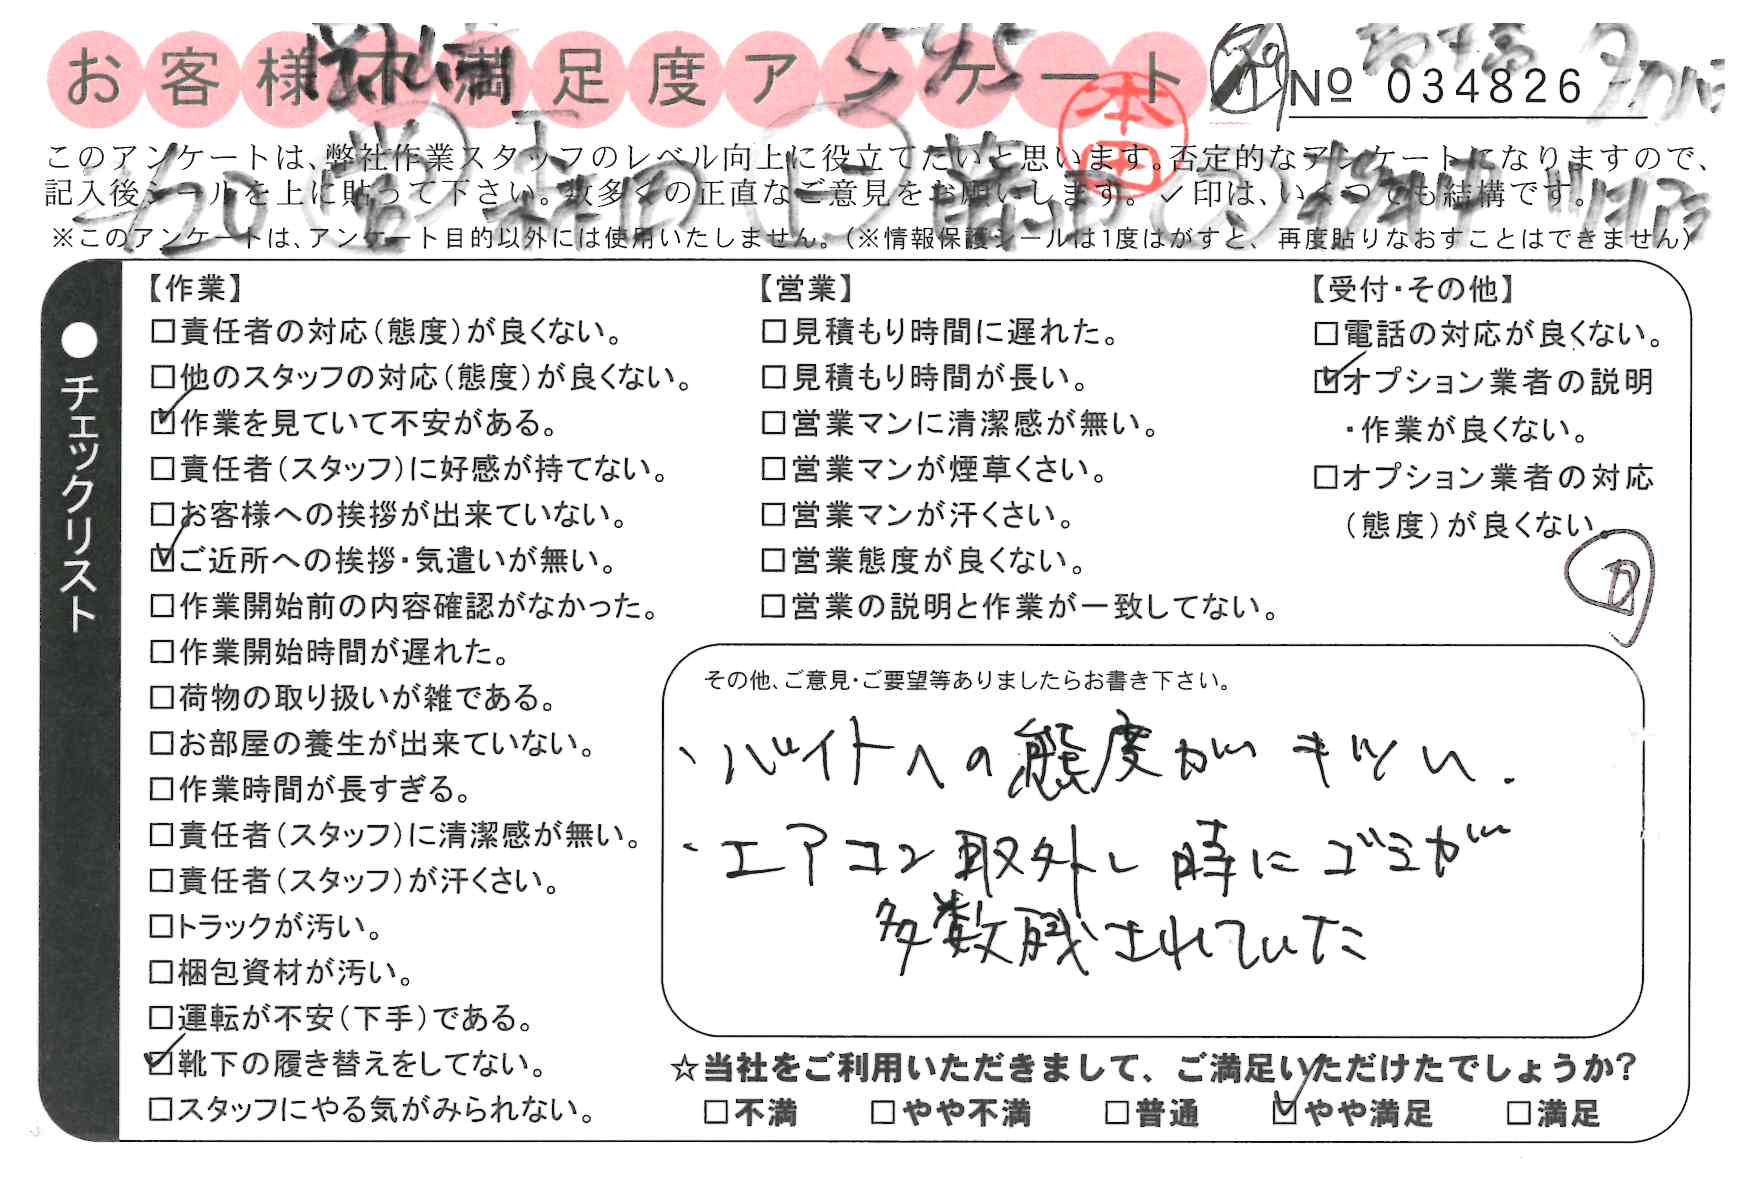 お客様不満足度アンケート
本田
No 034826
このアンケートは、弊社作業スタッフのレベル向上に役立てたいと思います。否定的なアンケートになりますので、
記入後シールを上に貼って下さい。数多くの正直なご意見をお願いします。✓印は、いくつでも結構です。
※このアンケートは、アンケート目的以外には使用いたしません。（※情報保護シールは1度はがすと、再度貼りなおすことはできません）
●チェックリスト
【作業】
□責任者の対応（態度）が良くない。
□他のスタッフの対応（態度）が良くない。
☑作業を見ていて不安がある。
□責任者（スタッフ）に好感が持てない。
□お客様への挨拶が出来ていない。
☑ご近所への挨拶・気遣いが無い。
□作業開始前の内容確認がなかった。
□作業開始時間が遅れた。
□荷物の取り扱いが雑である。
□お部屋の養生が出来ていない。
□作業時間が長すぎる。
□責任者（スタッフ）に清潔感が無い。
□責任者（スタッフ）が汗くさい。
□トラックが汚い。
□梱包資材が汚い。
□運転が不安（下手）である。
☑靴下の履き替えをしてない。
□スタッフにやる気がみられない。
【営業】
□見積もり時間に遅れた。
□見積もり時間が長い。
□営業マンに清潔感が無い。
□営業マンが煙草くさい。
□営業マンが汗くさい。
□営業態度が良くない。
□営業の説明と作業が一致してない。
【受付・その他】
□電話の対応が良くない。
☑オプション業者の説明
・作業が良くない。
□オプション業者の対応
（態度）が良くない。
その他、ご意見・ご要望等ありましたらお書き下さい。
・バイトへの態度がキツい.
・エアコン取外し時にゴミが
多数残されていた
☆当社をご利用いただきまして、ご満足いただけたでしょうか?
□不満 □やや不満 □普通 ☑やや満足 □満足